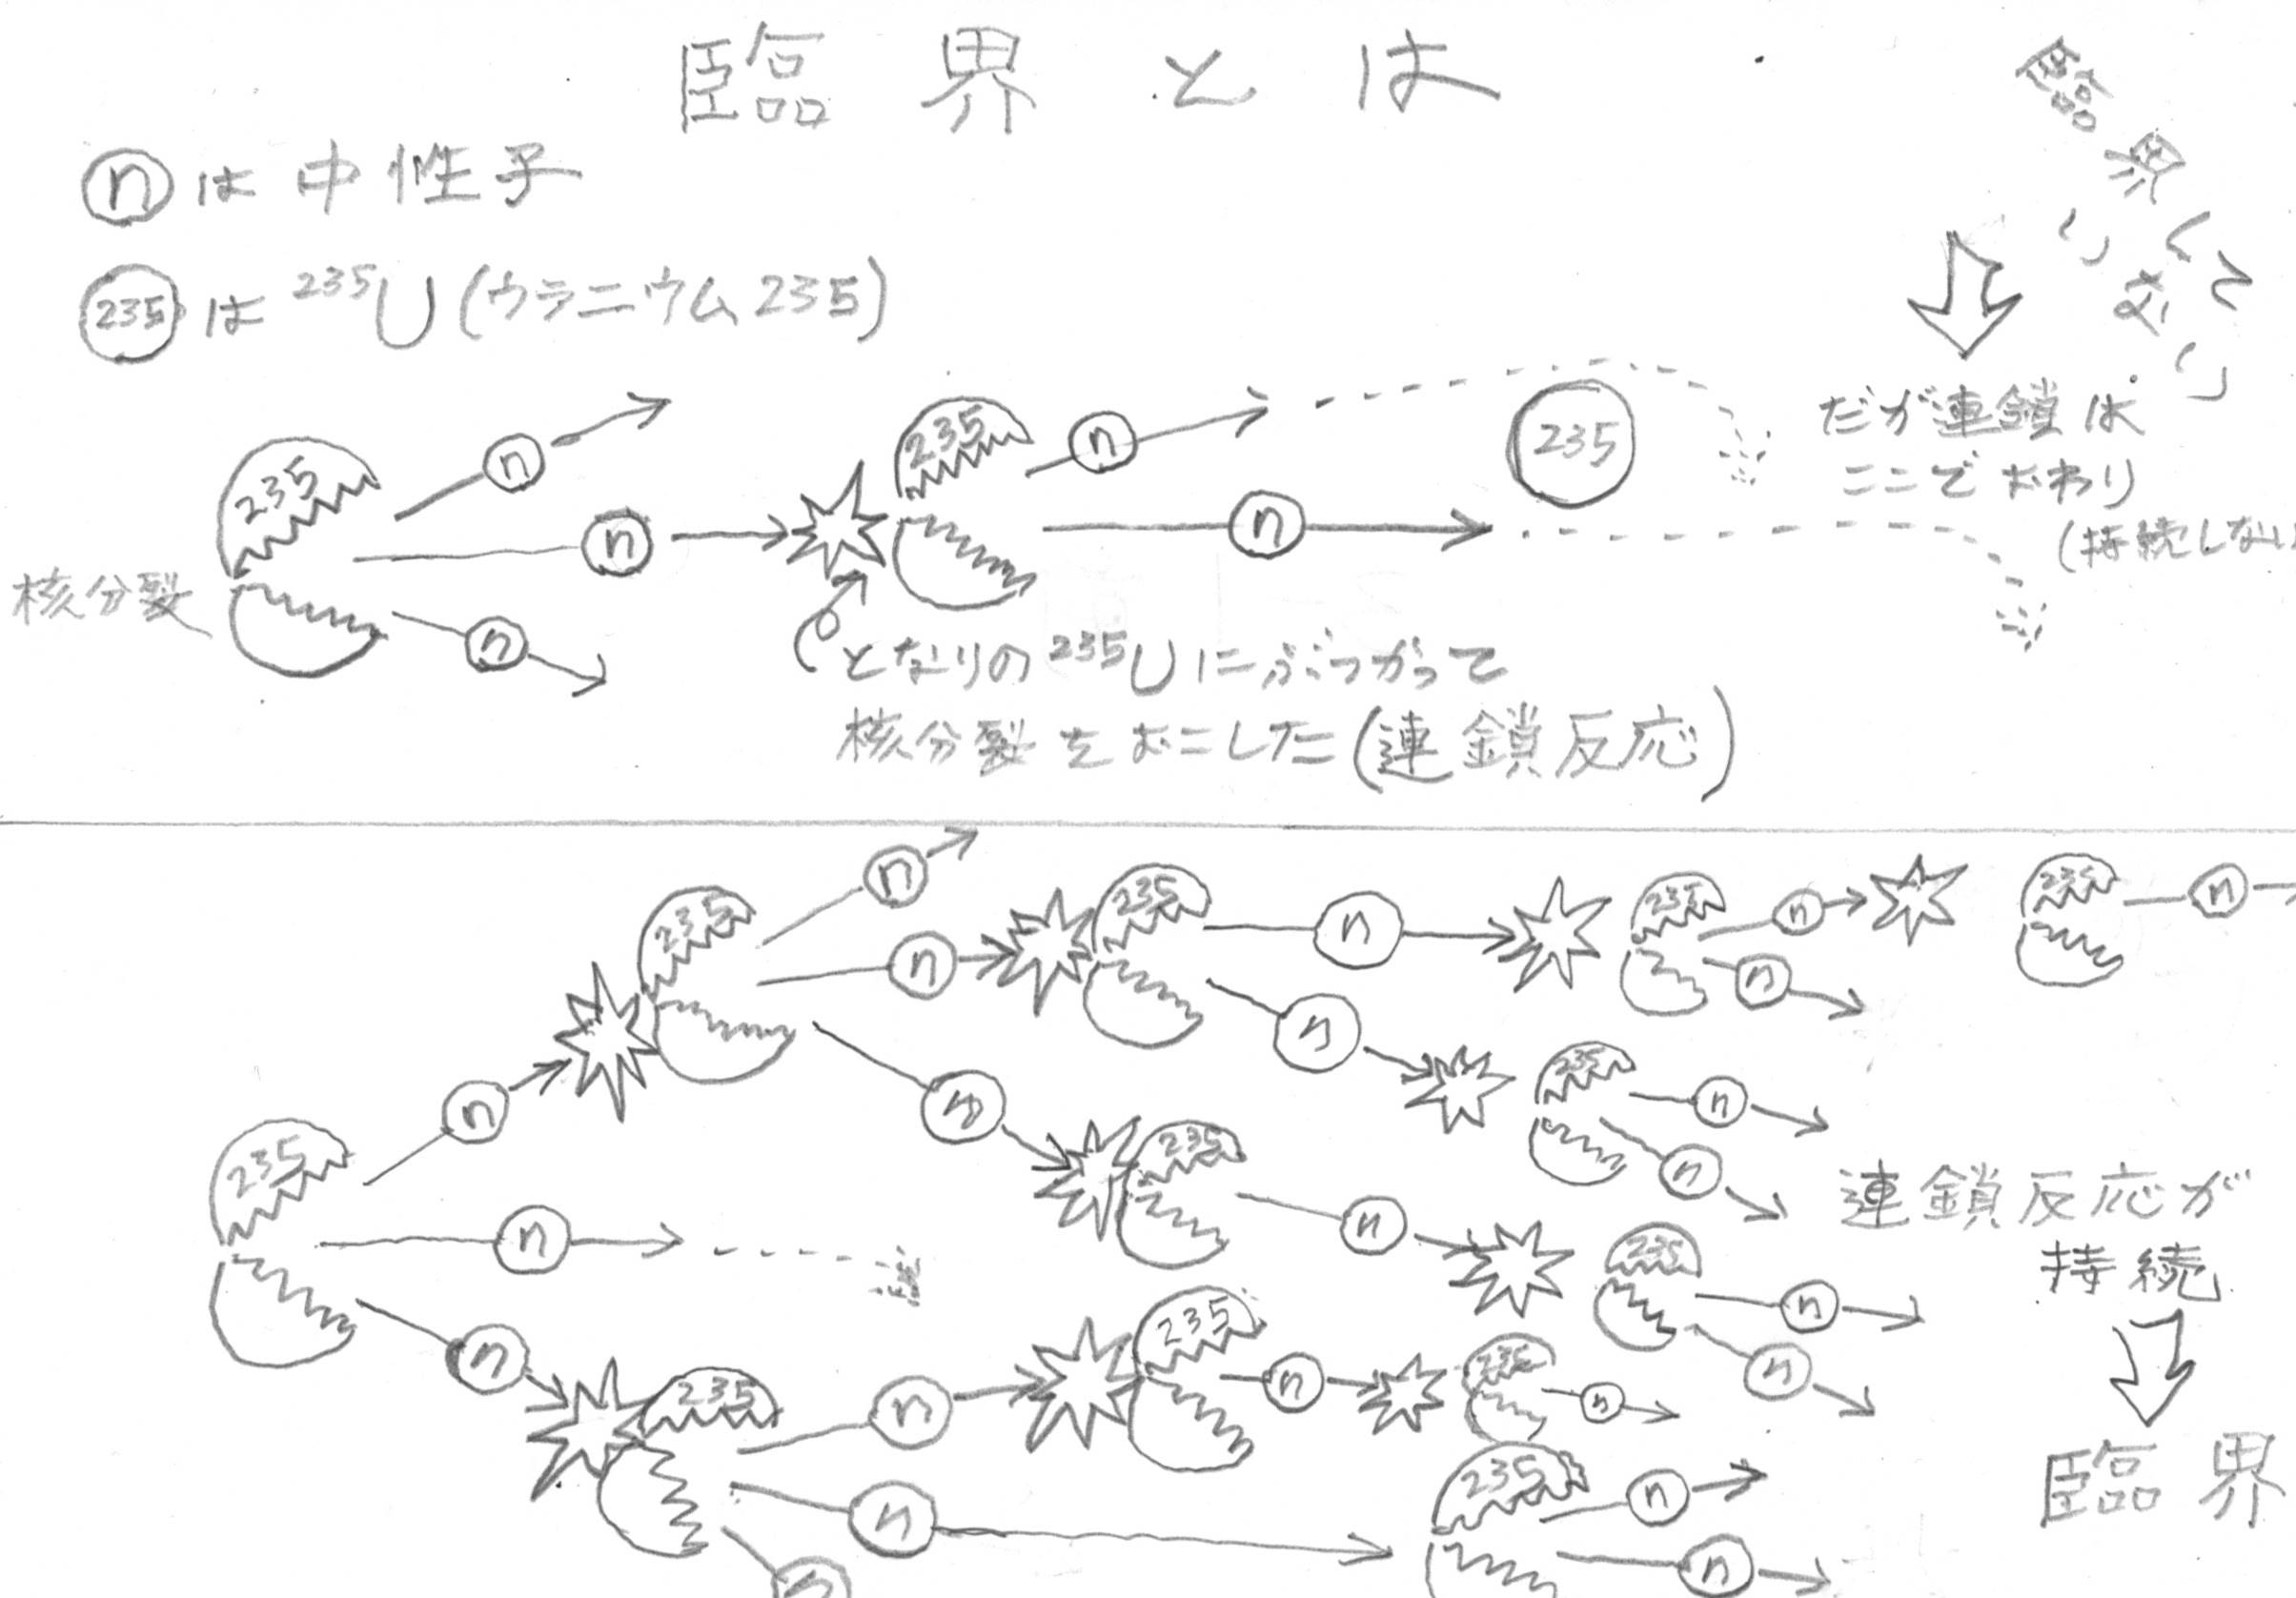 臨界とは
臨界
nは中性子
235は 235U (ウラニウム235)
235
n
n
n
核分裂
235
n
n
235
だが連鎖は
ここでおわり
(持続しない
となりの235Uにぶつかって
核分裂をおこした(連鎖反応)
235
n
n
n
235
n
n
n
235
n
n
235
n
n
235
n
235
n
n
235
n
235
n
n
235
n
n
235
n
235
n
235
n
n
連鎖反応が
持続
臨界